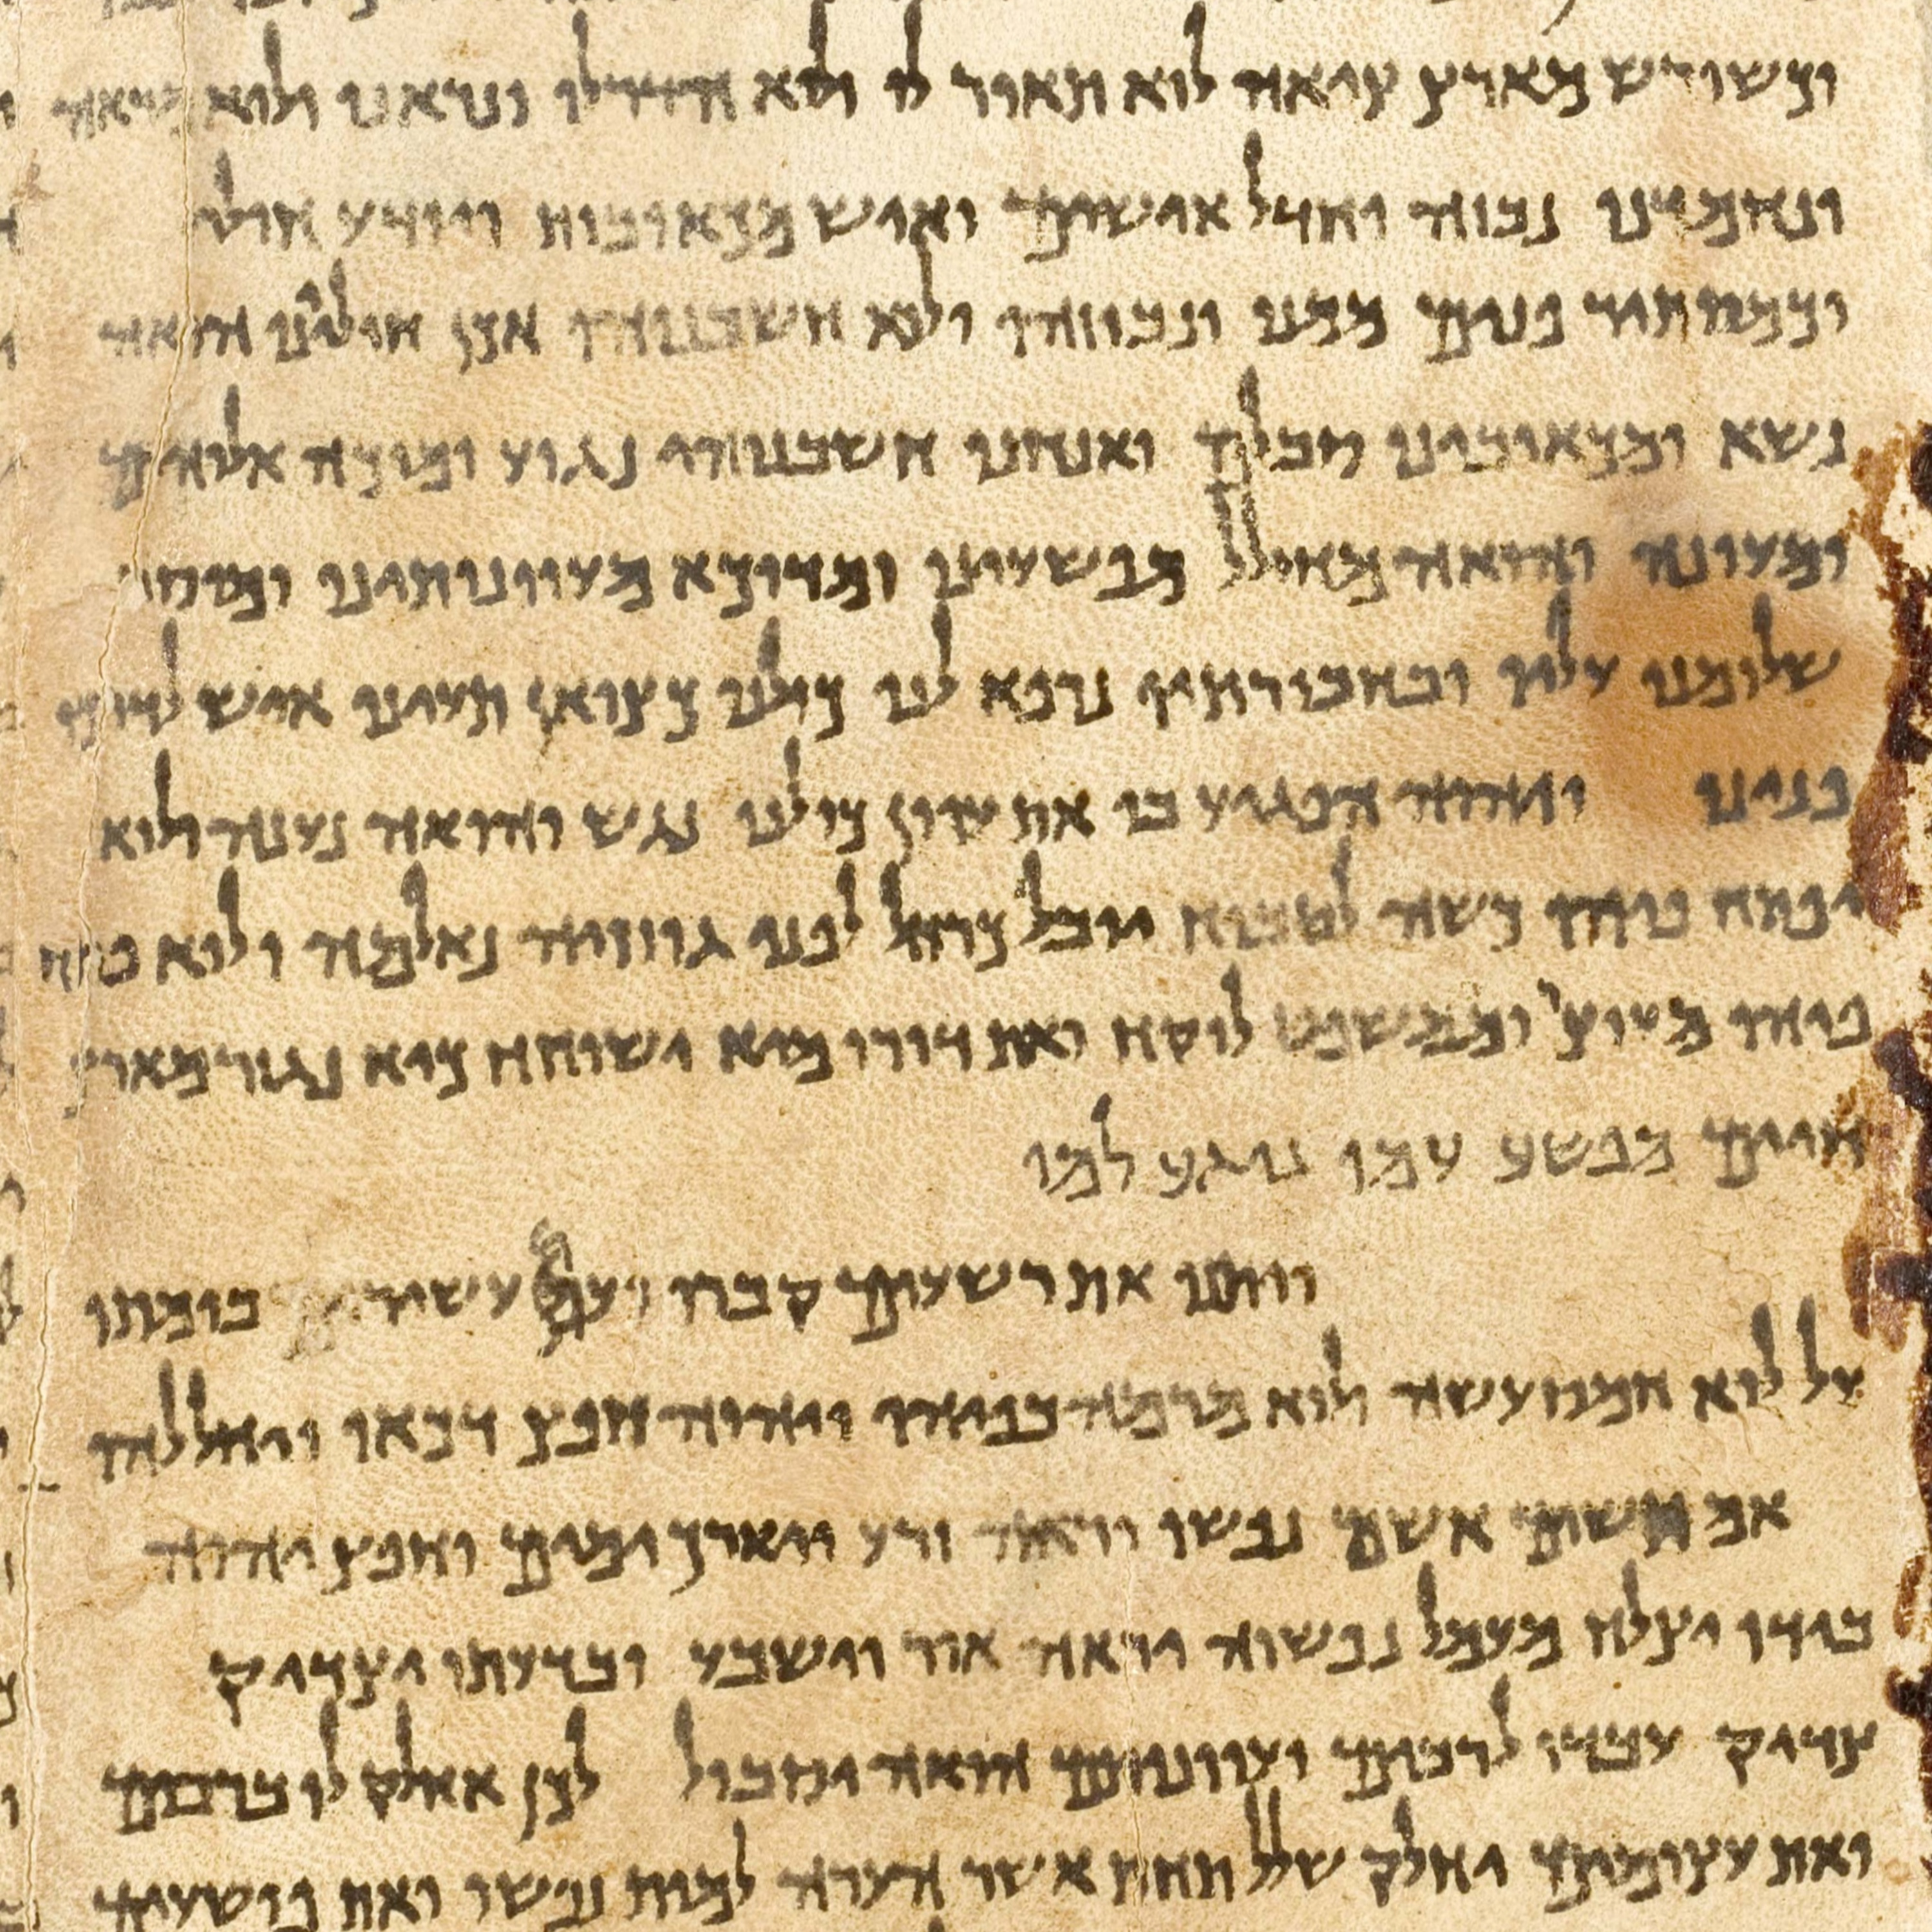 וכשורש מארץ ציאה לוא תאור לו ולוא הדר לו ונראנו ולוא מראה
ונחמדנו נבזה וחדל אישים ואיש מכאובות ויודע חולי
וכמסתיר פנים ממנו ונבוזהו ולוא חשבנוהו אכן חוליינו הואה
נשא ומכאובינו סבלם ואנחנו חשבנוהו נגוע ומוכה אלוהים
ומעונה והואה מחולל מפשעינו ומדוכא מעוונותינו ומוסר
שלומנו עליו ובחבורתיו נרפא לנו כולנו כצואן תעינו איש לדרכו
פנינו ויהוה הפגיע בו את עוון כולנו נגש והואה נענה ולוא
יפתח פיהו כשה לטבוח יובל כרחל לפני גוזזיה נאלמה ולוא פתח
פיהו מעוצר וממשפט לוקח ואת דורו מיא ישוחח כיא נגזר מארץ
חיים מפשע עמו נוגע למו
ויתנו את רשעים קברו ועם עשיר בומתו
על לוא חמס עשה ולוא מרמה בפיהו ויהוה חפץ דכאו ויחללהו
אם תשים אשם נפשו יראה זרע ויארך ימים וחפץ יהוה
בידו יצלח מעמל נפשוה יראה אור וישבע ובדעתו יצדיק
צדיק עבדו לרבים ועוונותם הואה יסבול לכן אחלק לו ברבים
ואת עצומים יחלק שלל תחת אשר הערה למות נפשו ואת פושעים